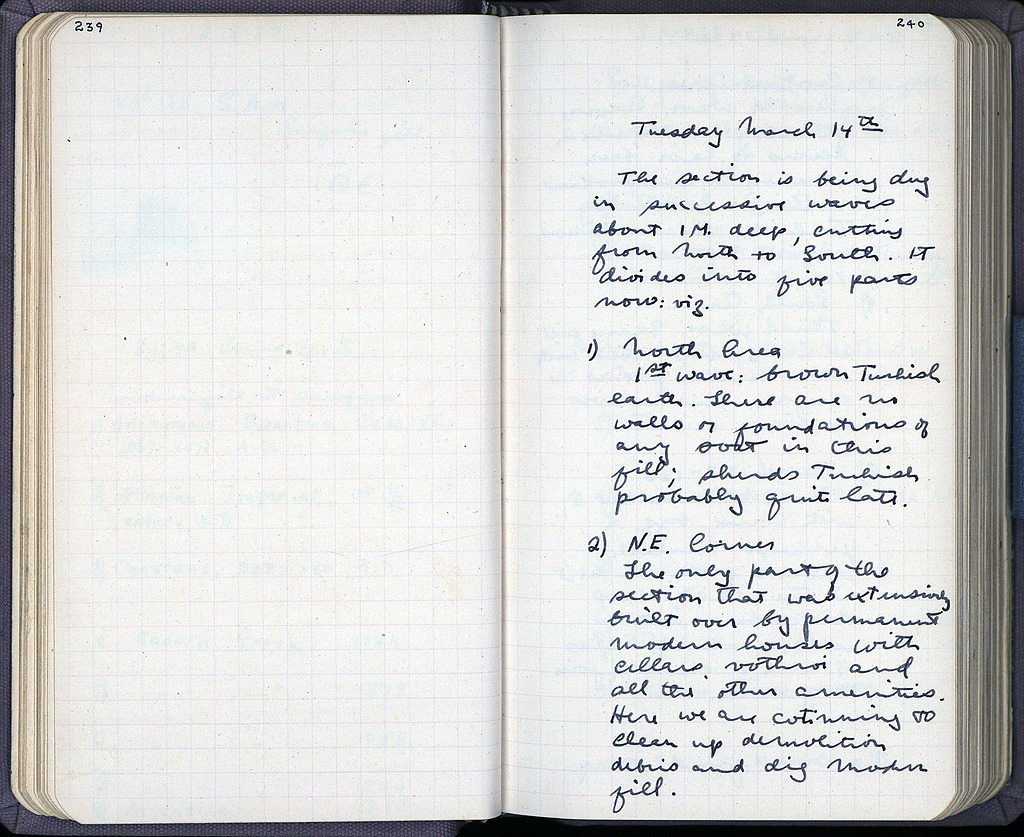 239
240
Tuesday March 14th
The section is being dug
in successive waves
about 1M. deep, cutting
from North to South. It
divides into five parts
now: viz.
1) North Area
1st wave: brown Turkish
earth. There are no
walls or foundations of
any sort in this
fill; sherds Turkish
probably quite late.
2) N.E. Corner
The only part of the
section that was extensively
built over by permanent
modern houses with
cellars, vothroi and
all the other amenities.
Here we are cotinning to
clean up demolition
debris and dig modern
fill.